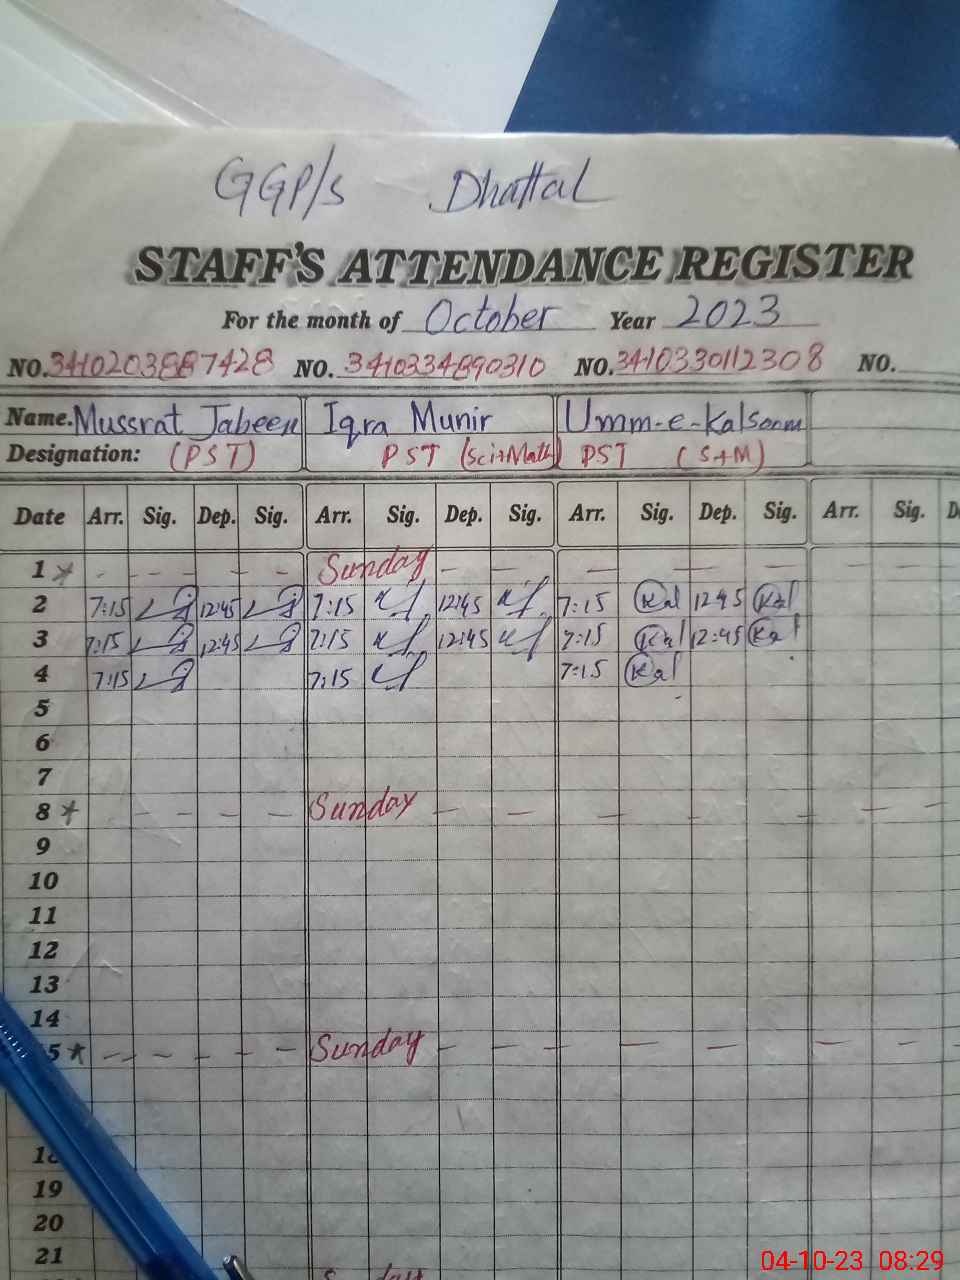 GGP/s Dhattal
STAFF'S ATTENDANCE REGISTER
For the month of October Year 2023
NO. 3410203887428 NO. 3410334890310 NO. 3410330112308 NO.
Name. Mussrat Jabeen Iqra Munir Umm-e-Kalsoom
Designation: (PST) PST (Sci+Math) PST (S+M)
Date Arr. Sig. Dep. Sig. Arr. Sig. Dep. Sig. Arr. Sig. Dep. Sig. Arr. Sig.
1 * - - - - - Sunday - - - - - - - -
2 7:15 12:45 7:15 12:45 7:15 Kal 12:45 Kal
3 7:15 12:45 7:15 12:45 7:15 Kal 12:45 Kal
4 7:15 7:15 7:15 Kal
5
6
7
8 * - - - - Sunday - - - - - - - -
9
10
11
12
13
14
5 * - - - - - - Sunday - - - - - - - -
19
20
21
04-10-23 08:29